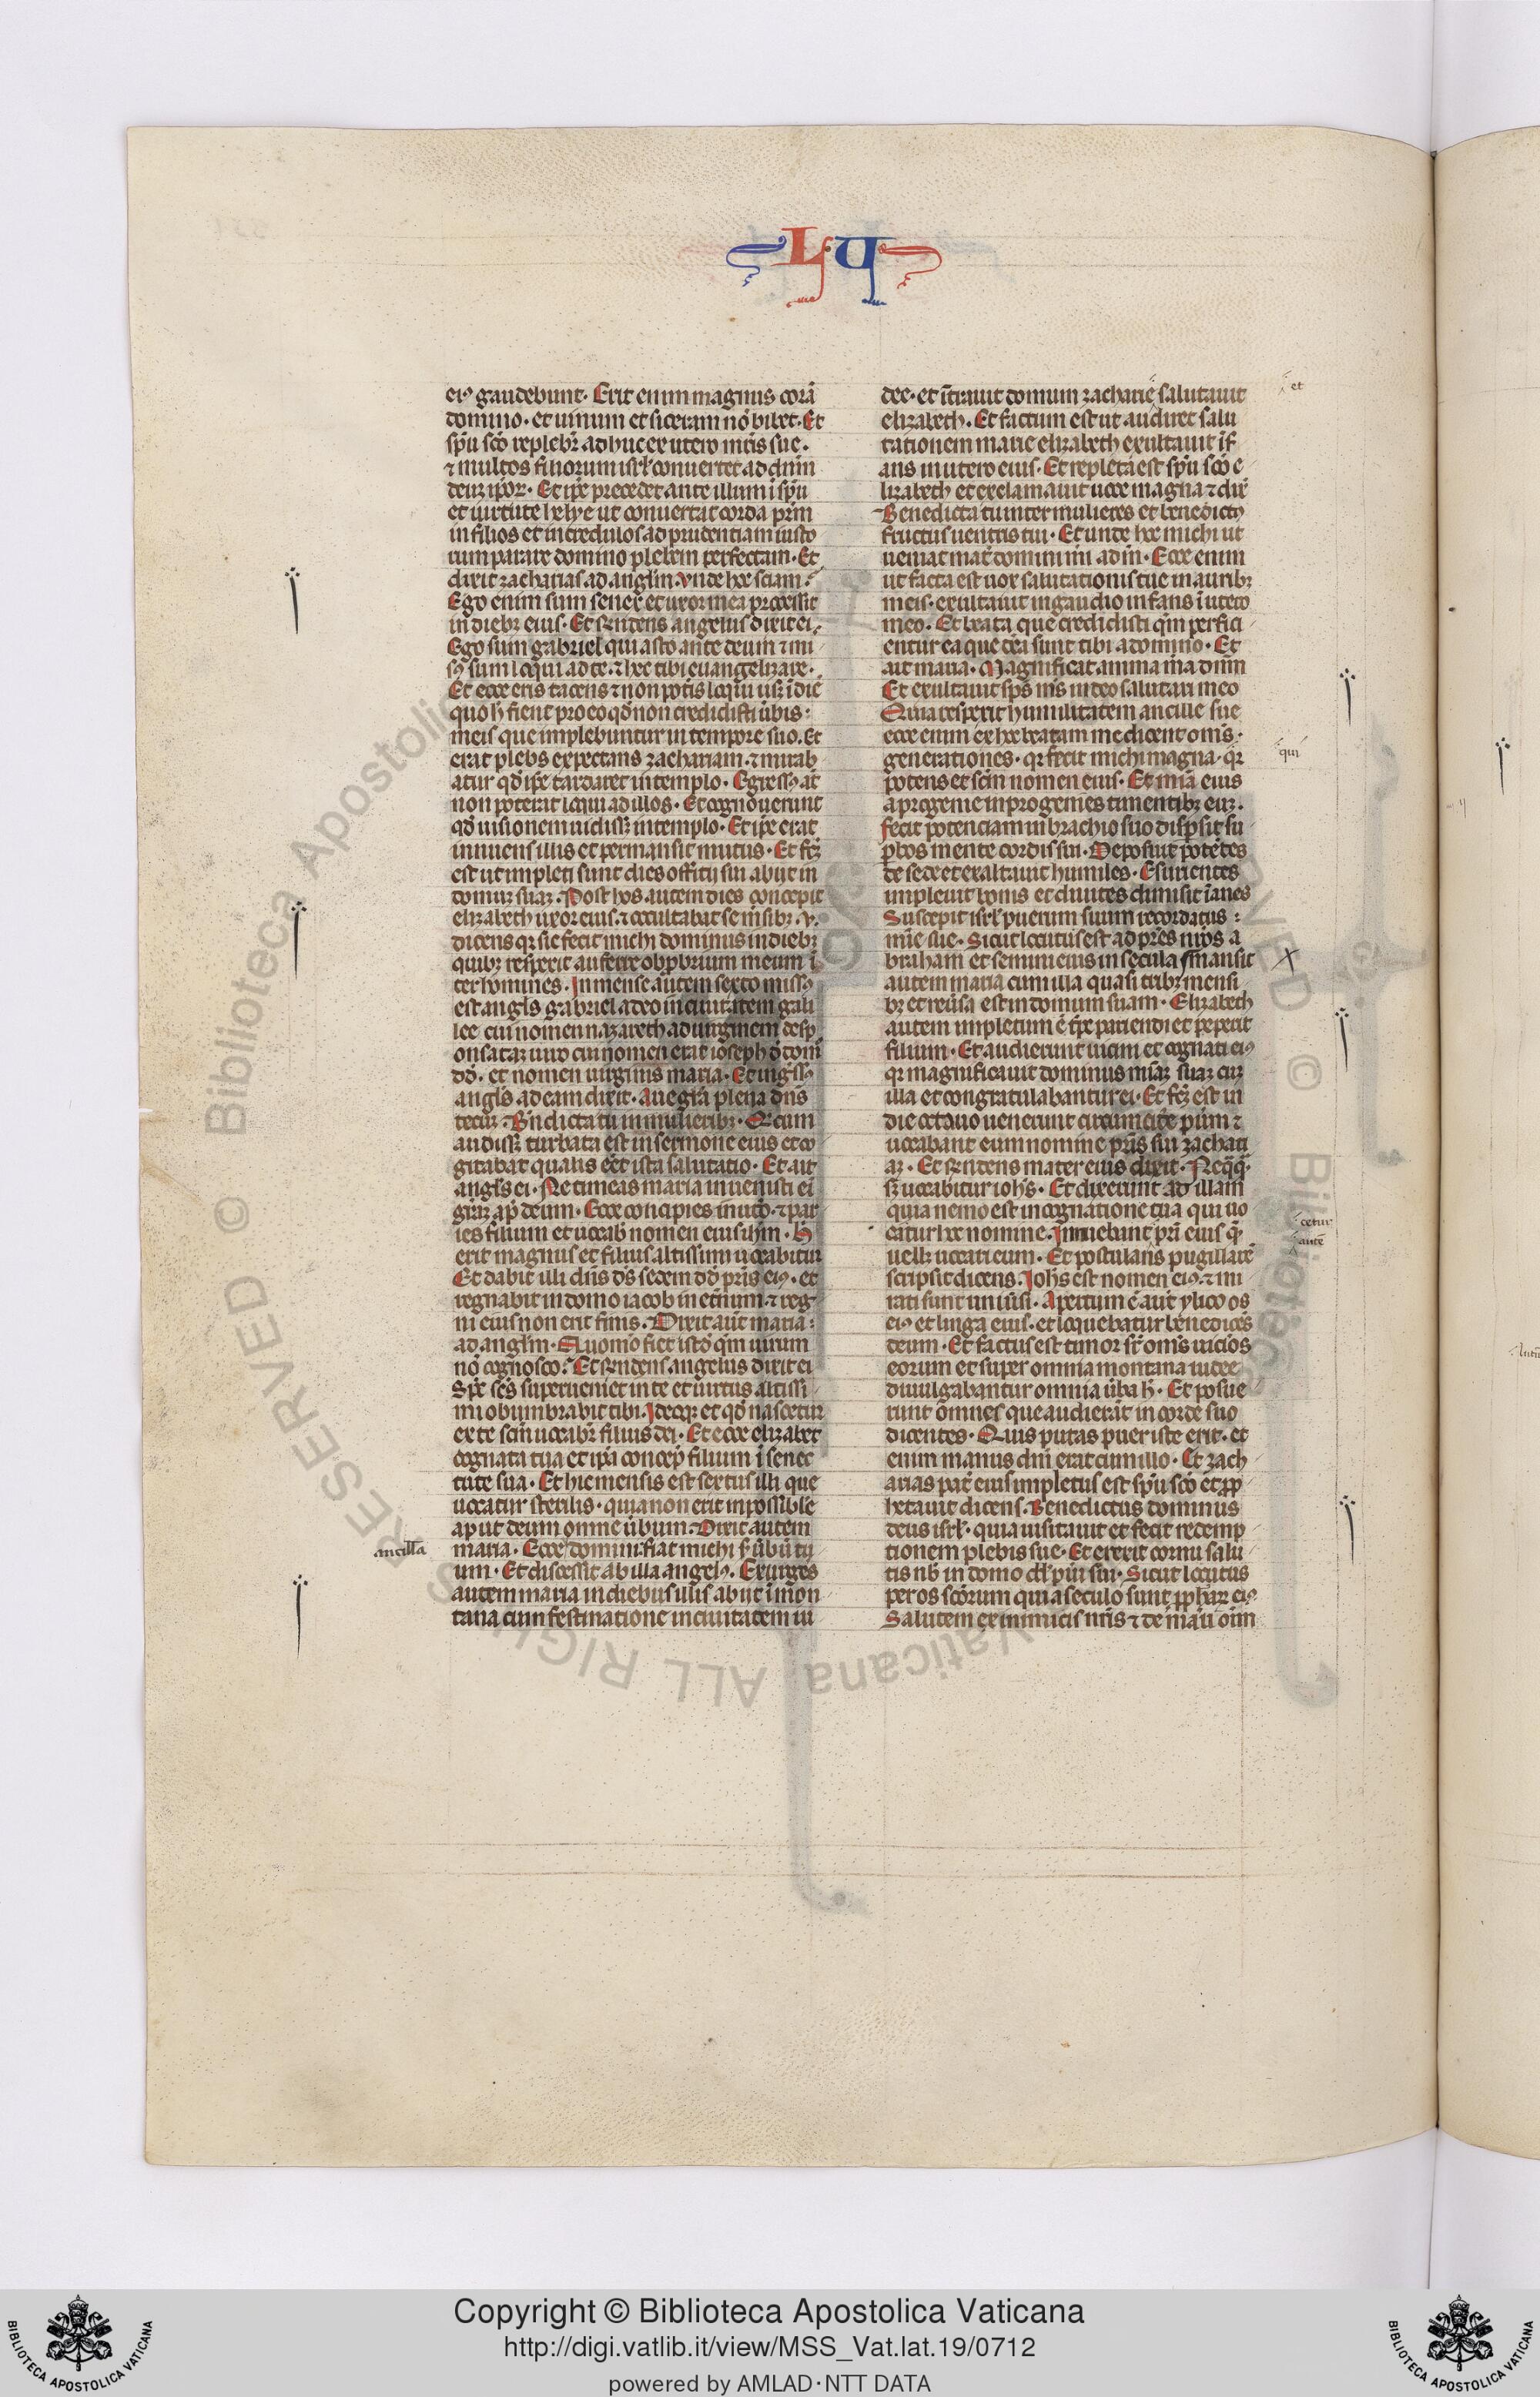 LU
ei᷒ gaudebunt. Erit enim magnus corā
domino. et uinum et siceram nō bibet. Et
sp̄u sc̄o replebit᷑ adhuc ex utero mr̄is sue.
⁊ multos filiorum isrł conuertet ad dn̄m
deuꝫ ip̄oꝝ. Et ip̄e precedet ante illum ī sp̄u
et uirtute helye ut conuertat corda pr̄m
in filios et incredulos ad prudentiam iusto
rum parare domino plebem perfectam. Et
dixit zacharias ad angl̄m. Vnde hoc sciam?
Ego enim sum senex et uxor mea processit
in dieb᷒ eius. Et r̄ndens angelus dixit ei.
Ego sum gabriel qui asto ante deum ⁊ mi
s᷒ sum loqui ad te. ⁊ hec tibi euangelizare.
Et ecce eris tacens ⁊ non pot̄is loqui usꝫ ī diē
quo h̄ fient pro eo qd̄ non credidisti ūbis
meis que implebuntur in tempore suo. Et
erat plebs expectans zachariam. ⁊ mirab
atur qd̄ ip̄e tardaret in templo. Egress᷒ at̄
non poterat loqui ad illos. Et cognouerunt
qd̄ uisionem uidissꝫ in templo. Et ip̄e erat
innuens illis et permansit mutus. Et fc̄ꝫ
est ut impleti sunt dies officij sui abijt in
domuꝫ suaꝫ. Post hos autem dies concepit
elizabeth uxor eius. ⁊ occultabat se m̄sibꝫ .v.
dicens qꝛ sic fecit michi dominus in diebꝫ
quibꝫ respexit auferre obprbrium meum ī
ter homines. In mense autem sexto miss᷒
est angl̄s gabriel a deo in ciuitatem gali
lee cui nomen nazareth ad uirginem desp
onsataꝫ uiro cui nomen erat ioseph d̄ dom̄
dd̄. et nomen uirginis maria. Et ingss᷒
angl̄s ad eam dixit. Aue gr̄a plena dn̄s
tecuꝫ. Bn̄dicta tu in mulieribꝫ. Q̄ cum
audissꝫ turbata est in sermone eius et co
gitabat qualis eēt ista salutatio. Et ait
angl̄s ei. Ne timeas maria inuenisti eī
gr̄aꝫ ap̄ deum. Ecce concipies in ut̄o. ⁊ par
ies filium et uocab᷒ nomen eius ihm̄. H̄
erit magnus et filius altissimi uocabitur
Et dabit illi dn̄s ds̄ sedem dd̄ pr̄is ei᷒. et
regnabit in domo iacob in et̄num. ⁊ reg
ni eius non erit finis. Dixit aūt maria
ad angl̄m. Quomō fiet istd̄ qm̄ uirum
nō cognosco? Et r̄ndens angelus dixit ei
Sp̄c sc̄s superueniet in te et uirtus altissi
mi obumbrabit tibi. Ideoqꝫ et qd̄ nascetur
ex te sc̄m uocabit᷑ filius dei. Et ecce elizabet
cognata tua et ip̄a concep̄ filium ī senec
tute sua. Et hic mensis est sextus illi que
uocatur sterilis. quia non erit inpossibile
aput deum omne ūbum. Dixit autem
ancilla
maria. Ecce domini. fiat michi s̄ ūbū tu
um. Et discessit ab illa angel᷒. Exurgēs
autem maria in diebus illis abiit ī mon
tana cum festinatione in ciuitatem iu
dee. et īt̄uuit domum zacharie salutauit
et
elizabeth. Et factum est ut audiret salu
tationem marie elizabeth exultauit īf
ans in utero eius. Et repleta est sp̄u sc̄o e
lizabeth et exclamauit uoce magna ⁊ dix̄
Benedicta tu inter mulieres et benedict᷒
fructus uentris tui. Et unde hoc michi ut
ueniat mat̄ domini mī ad m̄. Ecce enim
ut facta est uox salutationis tue in auribꝫ
meis. exultauit in gaudio infans ī utero
meo. Et beata que credidisti qm̄ perfici
entur ea que dc̄a sunt tibi a domino. Et
ait maria. Magnificat anima m̄a dnm̄
Et exultauit sp̄s m̄s in deo salutari meo
Quia respexit humilitatem ancille sue
ecce enim ex hoc beatam me dicent om̄s
generationes. qꝛ fecit michi magna. qꝛ
qui
potens et sc̄m nomen eius. Et mīa eius
a progenie in progenies timentibꝫ euꝫ.
fecit potenciam in brachio suo disp̄sit su
p̄bos mente cordis sui. Deposuit potētes
de sede et exaltauit humiles. Esurientes
impleuit bonis et diuites dimisit īanes
Suscepit isrł puerum suum recordatus
mīe sue. Sicut locutus est ad pr̄es nr̄os a
braham et semini eius in secula. mansit
autem maria cum illa quasi tribꝫ mensi
bꝫ et reūsa est in domum suam. Elizabeth
autem impletum ē tp̄c pariendi et peperit
filium. Et audierunt uicini et cognati ei᷒
qꝛ magnificauit dominus mīaꝫ suaꝫ cuꝫ
illa et congratulabantur ei. Et fc̄ꝫ est in
die octauo uenerunt circumcidē pūm ⁊
uocabant eum nomine pr̄is sui zachari
aꝫ. Et r̄ndens mater eius dixit. Neqq̄.
sꝫ uocabitur ioh̄s. Et dixerunt ad illam
quia nemo est in cognatione tua qui uo
cetur
catur hoc nomine. Innuebant pr̄i eius q̄
autē
uellꝫ uocari eum. Et postulans pugillarē
scripsit dicens. Ioh̄s est nomen ei᷒. ⁊ mi
rati sunt uniūsi. Apertum ē aūt ylico os
ei᷒ et linga eius. et loquebatur benedicēs
deum. Et factus est timor sr̄ om̄s uicīos
eorum et super omnia montana iudee
diuulgabantur omnia ūba h̄. Et posue
runt ōmnes que audierāt in corde suo
dicentes. Quis putas puer iste erit. et
enim manus dn̄i erat cum illo. Et zach
arias pat̄ eius impletus est sp̄u sc̄o et ꝓp
hetauit dicens. Benedictus dominus
deus isrł. quia uisitauit et fecit redemp
tionem plebis sue. Et erexit cornu salu
tis nb̄ in domo dd̄ pūi sui. Sicut locutus
per os sc̄orum qui a seculo sunt ꝓphaꝝ ei᷒
Salutem ex inimicis nr̄is ⁊ de manu oīm
Biblioteca Apostolica Vaticana ALL RIGHTS RESERVED ©
Copyright © Biblioteca Apostolica Vaticana
http://digi.vatlib.it/view/MSS_Vat.lat.19/0712
powered by AMLAD·NTT DATA
BIBLIOTECA APOSTOLICA VATICANA
BIBLIOTECA APOSTOLICA VATICANA